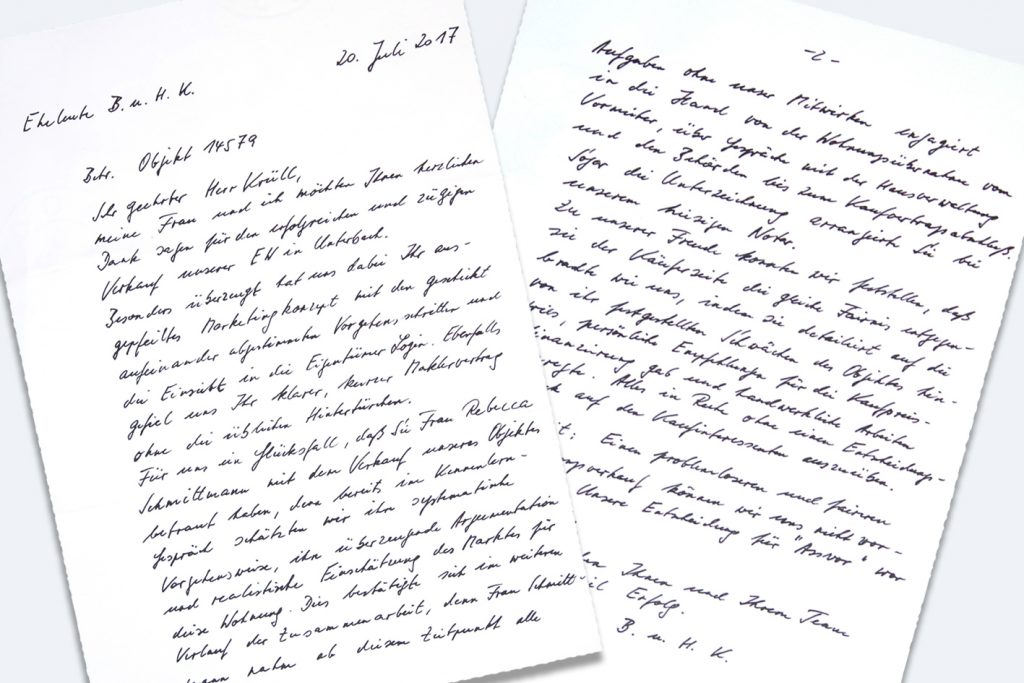 20. Juli 2017
Eheleute B. u. H. K.
Betr. Objekt 14579
Sehr geehrter Herr Krüll,
meine Frau und ich möchten Ihnen herzlichen
Dank sagen für den erfolgreichen und zügigen
Verkauf unserer EW in Unterbach.
Besonders überzeugt hat uns dabei Ihr aus-
gefeiltes Marketingkonzept mit den geschickt
aufeinander abgestimmten Vorgehensschritten und
die Einsicht in die Eigentümer Login. Ebenfalls
gefiel uns Ihr klarer, kurzer Maklervertrag
ohne die üblichen Hintertürchen.
Für uns ein Glücksfall, daß Sie Frau Rebecca
Schmittmann mit dem Verkauf unseres Objektes
betraut haben, denn bereits im Kennenlern-
Gespräch schätzten wir ihre systematische
Vorgehensweise, ihre überzeugende Argumentation
und realistische Einschätzung des Marktes für
diese Wohnung. Dies bestätigte sich im weiteren
Verlauf der Zusammenarbeit, denn Frau Schmitt-
mann nahm ab diesem Zeitpunkt alle
-2-
Aufgaben ohne unser Mitwirken engagiert
in die Hand von der Wohnungsübernahme vom
Vormieter, über Gespräche mit der Hausverwaltung
und den Behörden bis zum Kaufvertragsabschluß.
Sogar die Unterzeichnung arrangierte Sie bei
unserem hiesigen Notar.
Zu unserer Freude konnten wir feststellen, daß
sie der Käuferseite die gleiche Fairnis entgegen-
brachte wie uns, indem sie detailiert auf die
von ihr festgestellten Schwächen des Objektes hin-
wies, persönliche Empfehlungen für die Kaufpreis-
finanzierung gab und handwerkliche Arbeiten
Alles in Ruhe ohne einen Entscheidungs-
auf den Kaufinteressenten auszuüben.
Einen problemloseren und faireren
können wir uns nicht vor-
Unsere Entscheidung für "Assvor" war
Ihnen und Ihrem Team
Erfolg.
B. u. H. K.